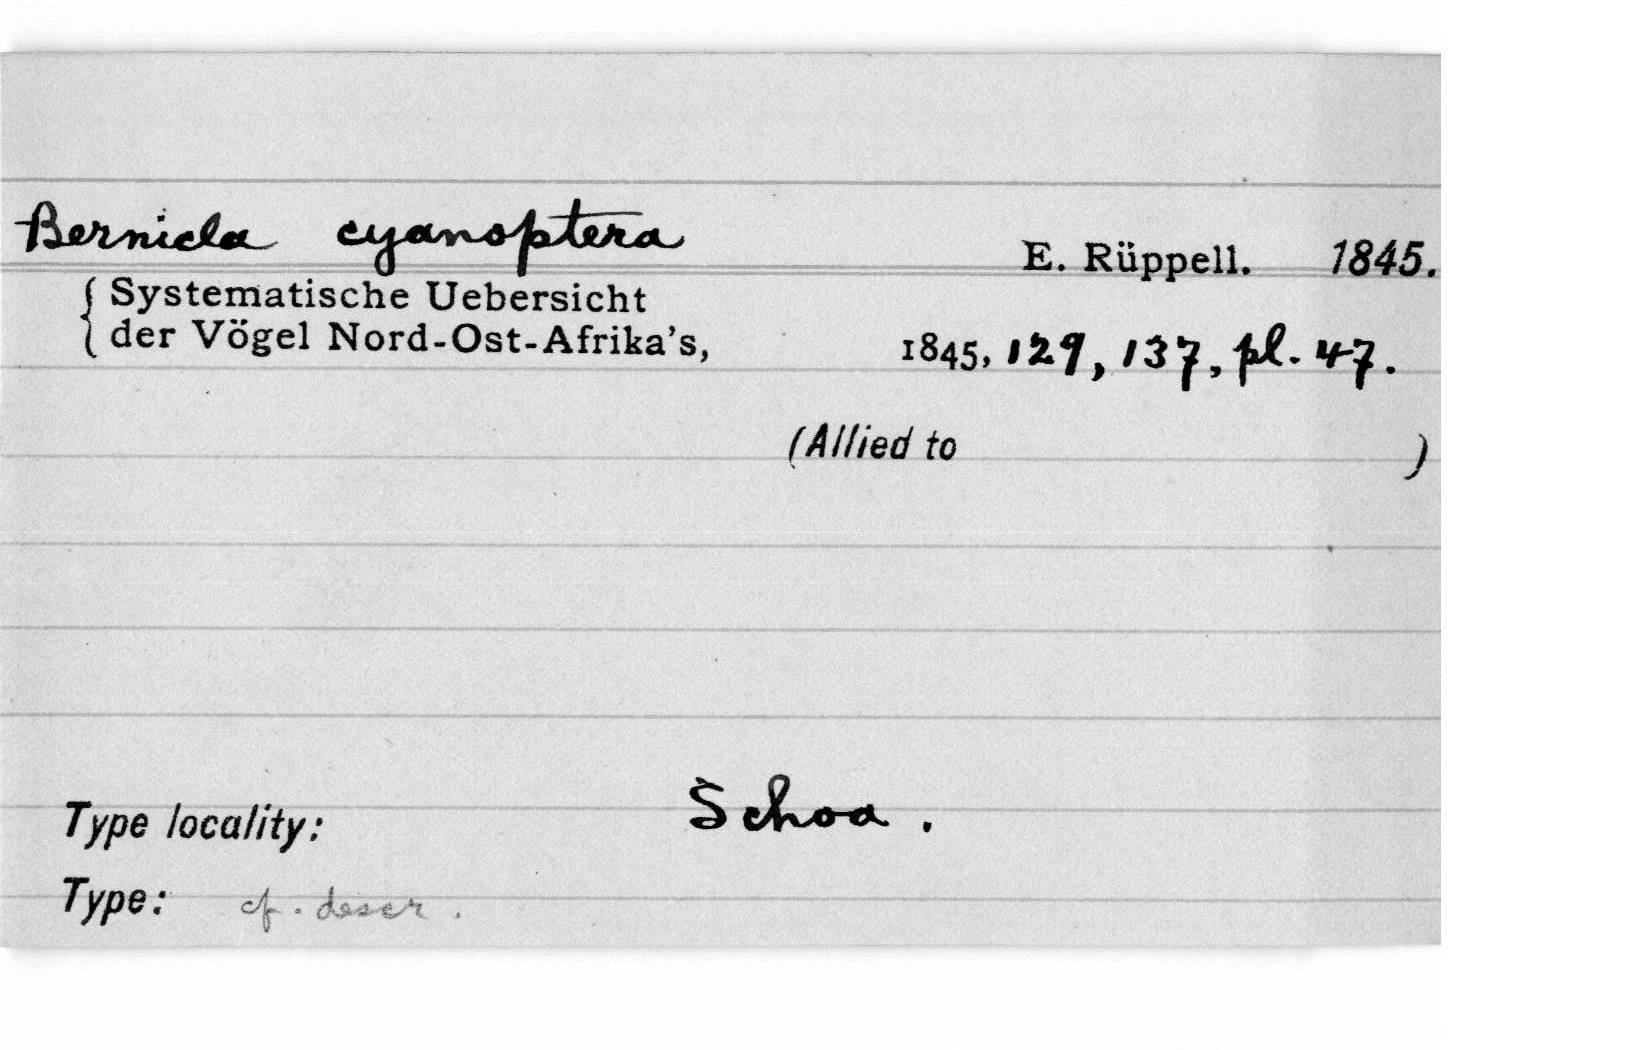 Bernicla cyanoptera E. Rüppell. 1845.
Systematische Uebersicht
der Vögel Nord-Ost-Afrika's, 1845, 129, 137, pl. 47.
(Allied to )
Type locality: Schoa.
Type: cf. descr.